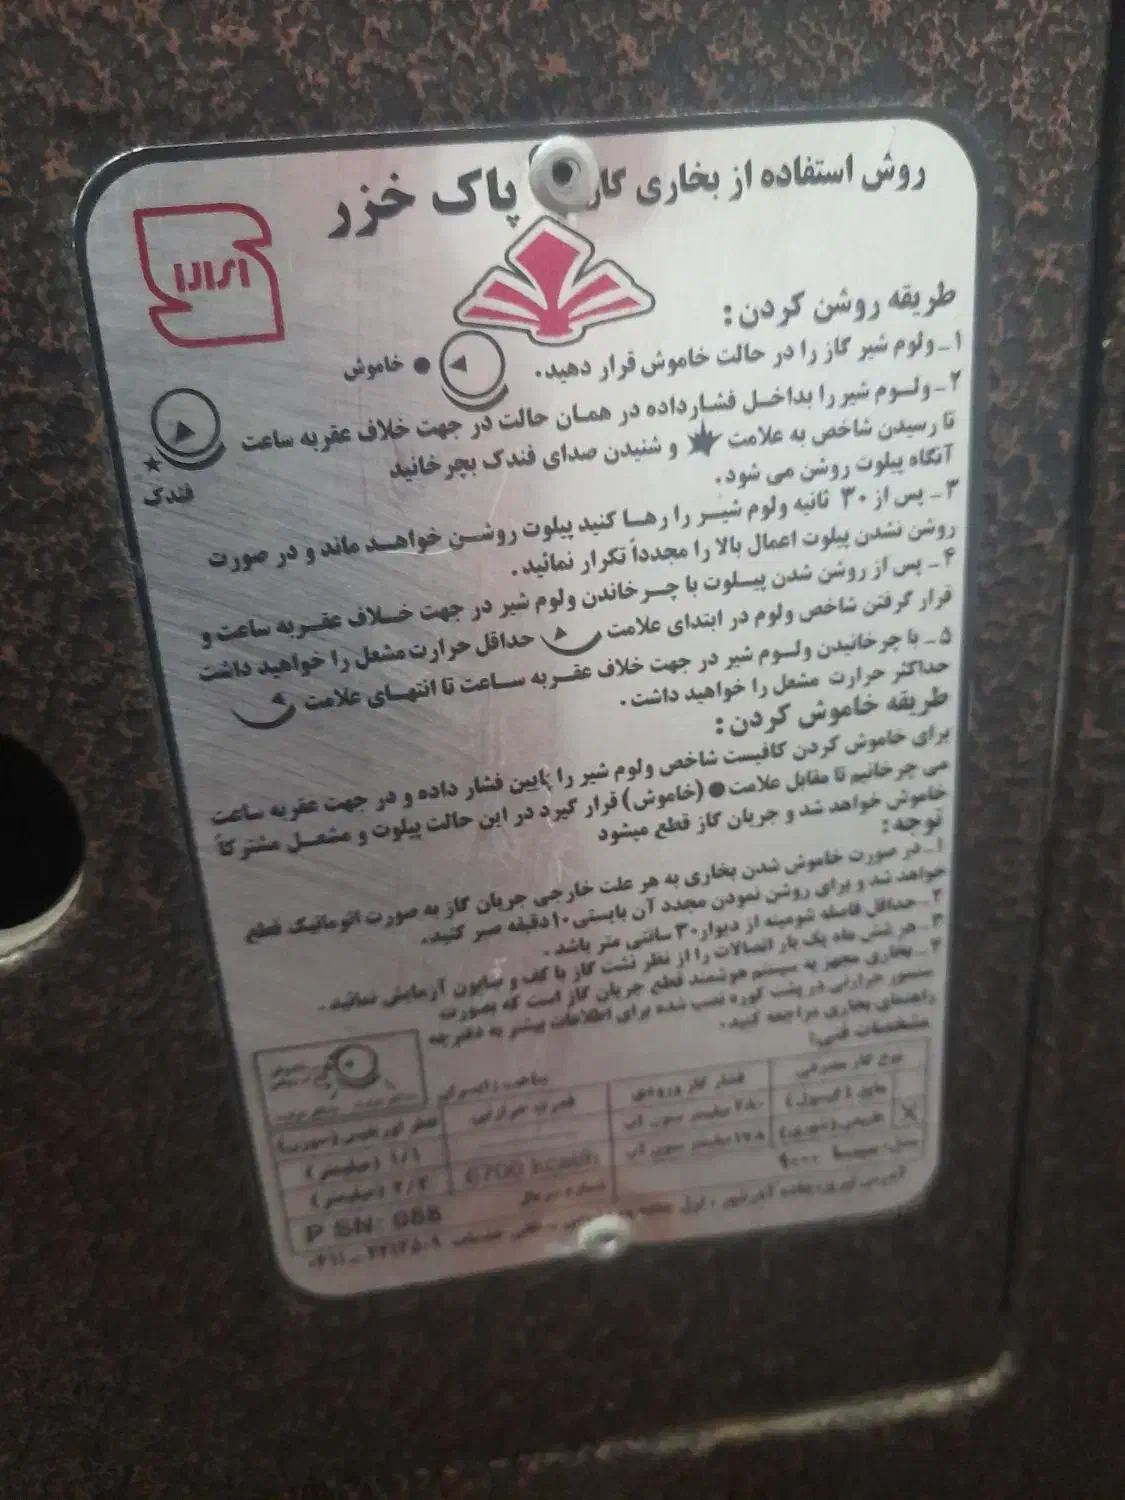 روش استفاده از بخاری گاز
پاک خزر
طریقه روشن کردن:
۱ـ ولوم شیر گاز را در حالت خاموش قرار دهید.
خاموش
۲ـ ولـوم شیر را بداخـل فشـارداده در همـان حالت در جهت خلاف عقربه ساعت
تا رسیدن شاخص به علامت و شنیدن صدای فندک بچرخانید
آنگاه پیلوت روشن می شود.
فندک
۳ـ پس از ۳۰ ثانیه ولوم شیـر را رهـا کنید پیلوت روشـن خواهـد ماند و در صورت
روشن نشدن پیلوت اعمال بالا را مجدداً تکرار نمائید.
۴ـ پس از روشن شدن پیـلوت با چـرخاندن ولوم شیر در جهت خـلاف عقـربه ساعت و
قرار گرفتن شاخص ولوم در ابتدای علامت حداقل حرارت مشعل را خواهید داشت
۵ـ با چرخانیدن ولـوم شیر در جهت خلاف عقـربه سـاعت تا انتهـای علامت
حداکثر حرارت مشعل را خواهید داشت.
طریقه خاموش کردن:
برای خاموش کردن کافیست شاخص ولوم شیر را پایین فشار داده و در جهت عقربه ساعت
می چرخانیم تا مقابل علامت (خاموش) قرار گیرد در این حالت پیلوت و مشعـل مشترکاً
خاموش خواهد شد و جریان گاز قطع میشود
توجه:
۱ـ در صورت خاموش شدن بخاری به هر علت خارجی جریان گاز به صورت اتوماتیک قطع
خواهد شد و برای روشن نمودن مجدد آن بایستی ۱۰ دقیقه صبر کنید.
۲ـ حداقل فاصله شومینه از دیوار ۳۰ سانتی متر باشد.
۳ـ هر شش ماه یک بار اتصالات را از نظر نشت گاز با کف و صابون آزمایش نمائید.
۴ـ بخاری مجهز به سیستم هوشمند قطع جریان گاز است که بصورت
سنسور حرارتی در پشت کوره نصب شده برای اطلاعات بیشتر به دفترچه
راهنمای بخاری مراجعه کنید.
مشخصات فنی:
ساخت: ایـران
نوع گاز مصرفی
فشار گاز ورودی
قدرت حرارتی
مایع (کپسول)
۲۸۰ میلیمتر ستون آب
۱/۱ (میلیمتر)
طبیعی (شهری)
۱۷۸ میلیمتر ستون آب
6700 kcal/h
۲/۲ (میلیمتر)
شماره سریال
P SN: 088